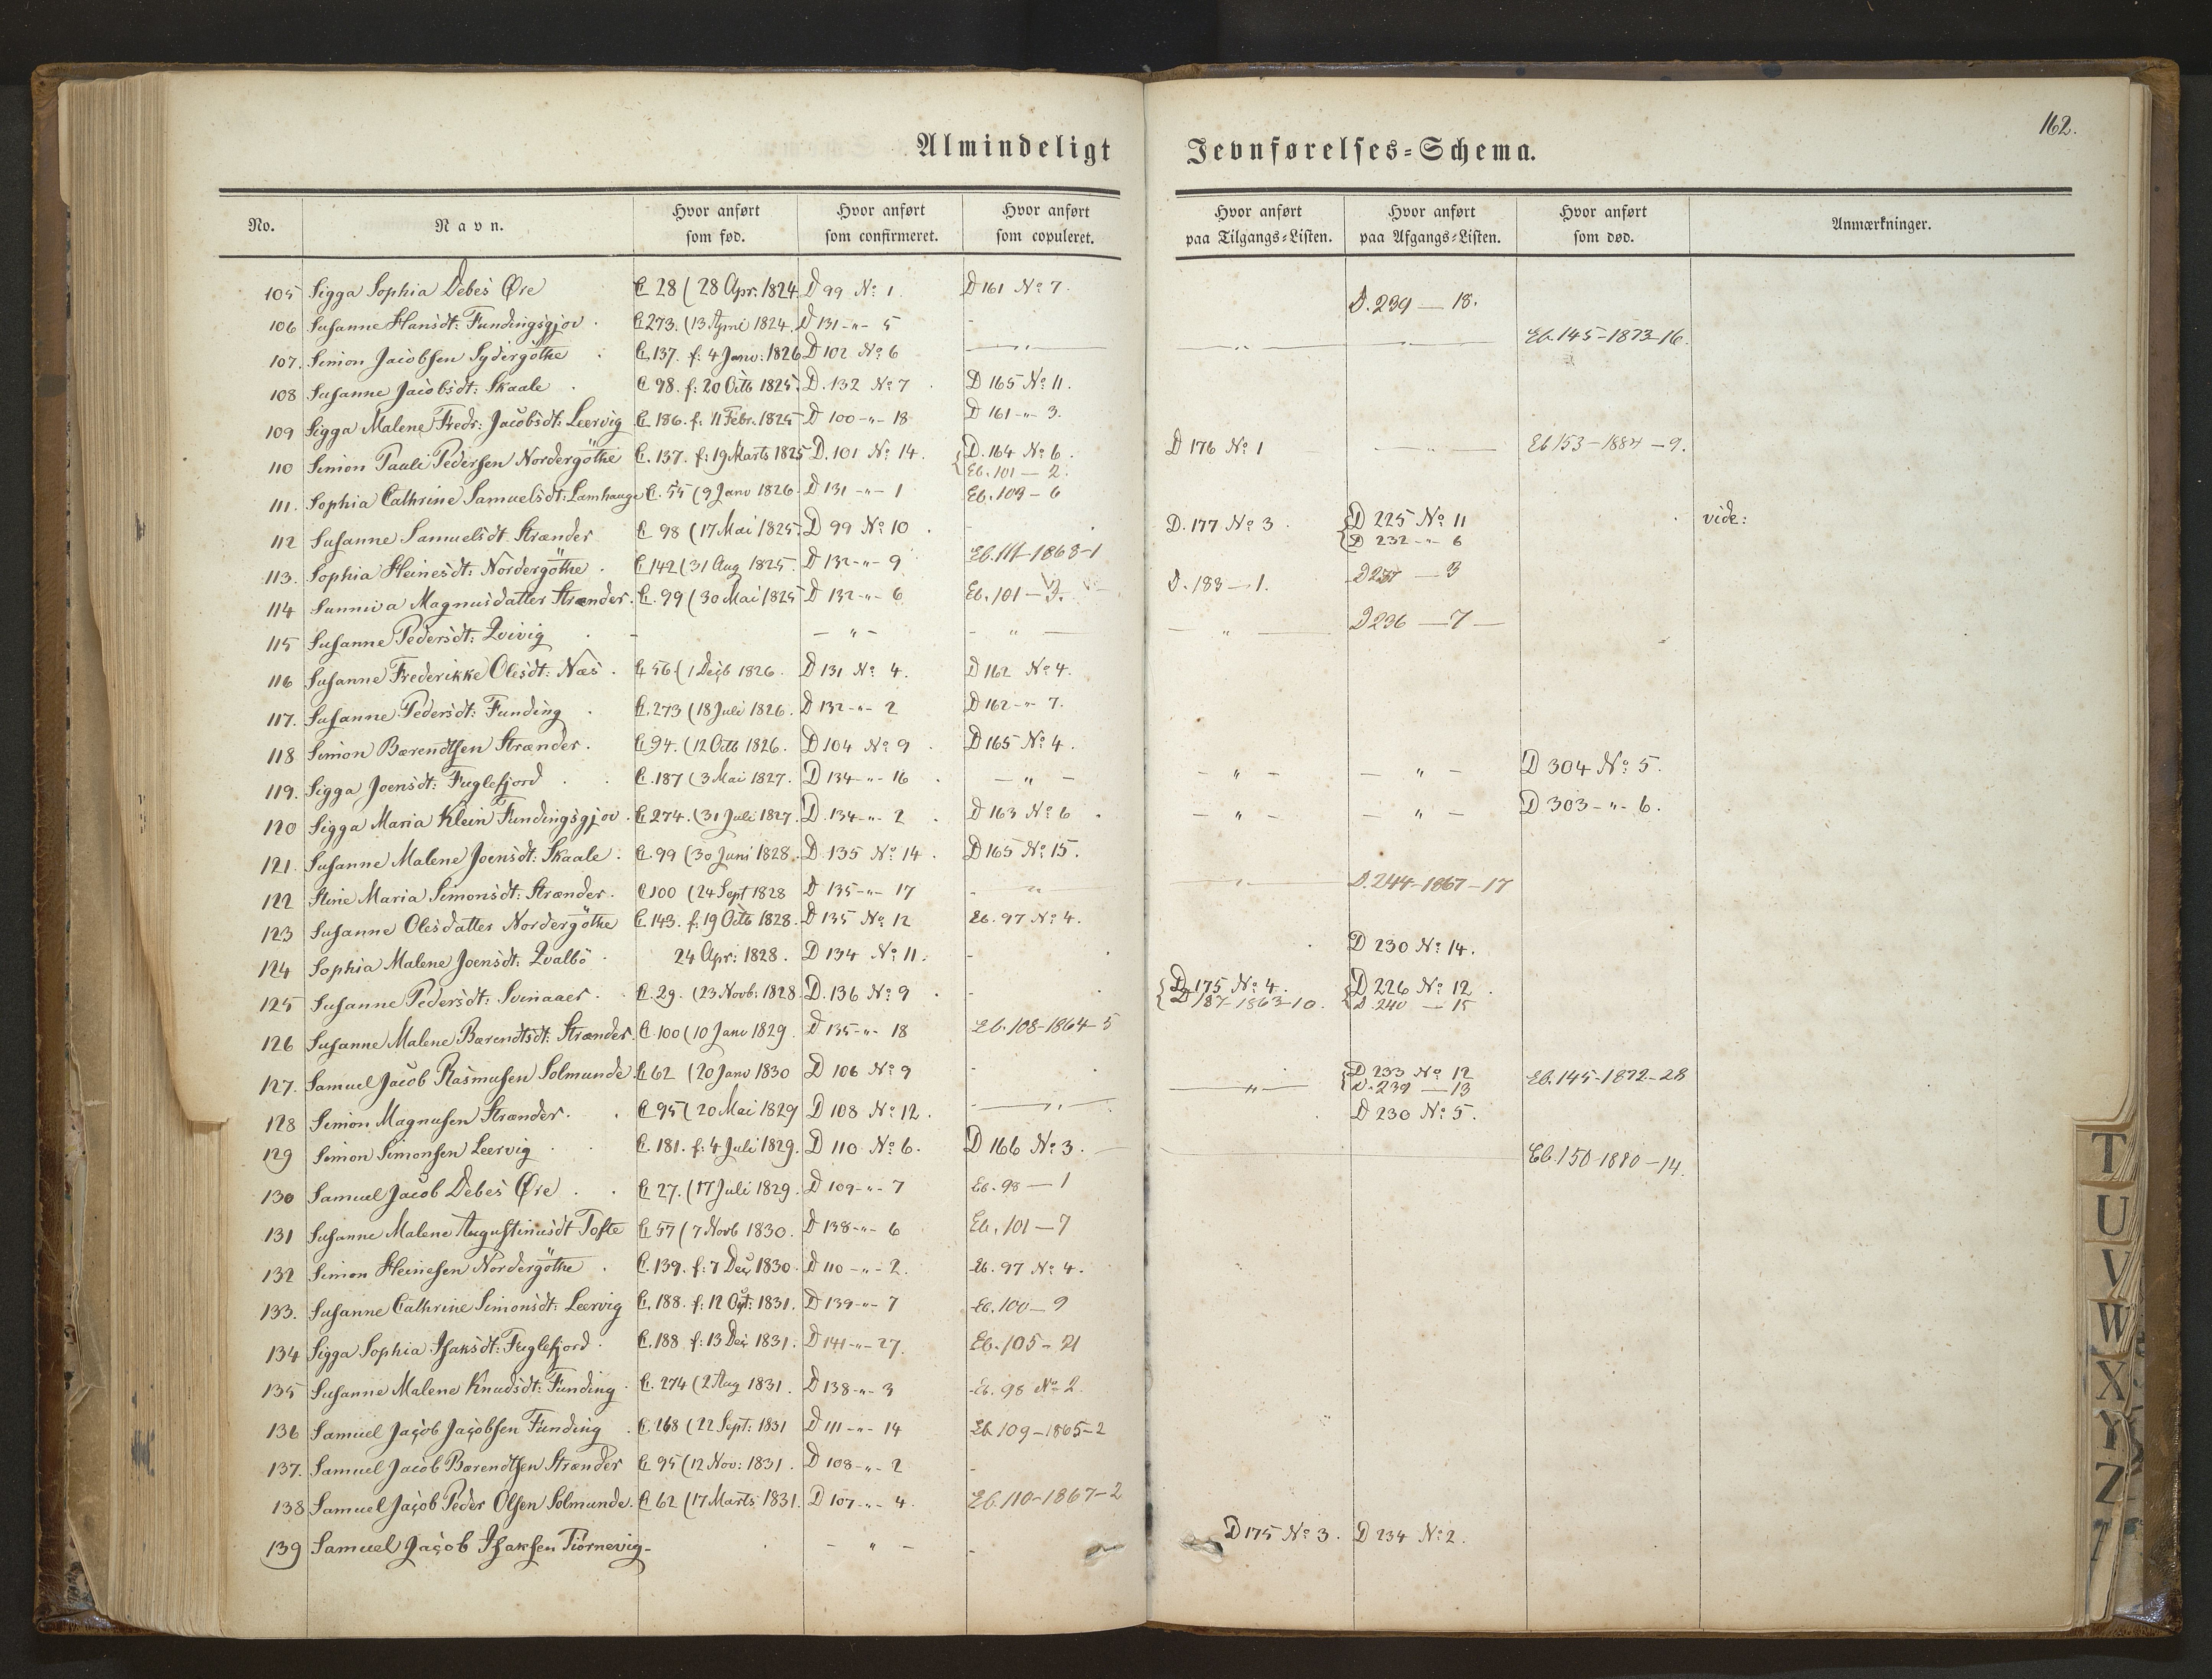 162.
Almindeligt Jevnførelses=Schema.
No. Navn. Hvor anført som fød. Hvor anført som confirmeret. Hvor anført som copuleret. Hvor anført paa Tilgangs=Listen. Hvor anført paa Afgangs=Listen. Hvor anført som død. Anmærkninger.
105 Sigga Sophia Debes Øre C 28 (28 Apr. 1824. D 99 No: 1. D 161 No 7. D. 239 — 18.
106 Susanne Hansdt: Fundingsgjov C 273. (13 1824. D 131 -"- 5 -
107. Simon Jacobsen Sydergöthe C. 137. f: 4 Janv: 1826 D 102 No: 6 —"— —"— —"— Eb. 145-1873-16.
108 Susanne Jacobsdt: Skaale C 98. f: 20 Octb 1825. D. 132 No: 7 D 165 No: 11.
109 Sigga Malene Fredr: Jacobsdt: Leervig C. 186. f. 11 Febr. 1825 D 100 -"- 18 D 161 -"- 3.
110 Simon Pauli Pedersen Nordergöthe C. 137. f: 19 Marts 1825 D. 101 No: 14. {D. 164 No: 6. D 176 No 1 —"— Eb 153-1884-9.
Eb. 101 — 2.
111. Sophia Cathrine Samuelsdt: Lamhauge C. 55 (9 Janv 1826. D 131 -"- 1 Eb. 109 - 6
112 Susanne Samuelsdt. Strænder C 98 (17 Mai 1825. D 99 No: 10 - D. 177 No 3. {D 225 No 11 vide:
D 232 -"- 6
113. Sophia Heinesdt: Nordergöthe C 142 (31 Aug 1825. D 132 -"- 9 Eb. 111-1868-1
114 Sunniva Magnusdatter Strænder. C. 99 (30 Mai 1825 D 132 -"- 6 Eb. 101 — 3. D. 183 — 1. D 237 — 3
115 Susanne Pedersdt: Qvivig - - " - - " — — " — D 236 — 7 —
116 Susanne Frederikke Olesdt: Næs C 56 (1 Decb 1826. D 131 No: 4. D 162 No 4.
117. Susanne Pedersdt: Funding C. 273 (18 Juli 1826. D 132 -"- 2 D 162 -"- 7.
118 Simon Bærendtsen Strænder. C. 94. (12 Octb 1826. D 104 No: 9 D 165 No: 4.
119. Sigga Joensdt: Fuglefjord C. 187 (3 Mai 1827. D 134 -"- 16 - " - - " - - " - D 304 No: 5.
120 Sigga Maria Klein Fundingsgjov. C 274. (31 Juli 1827. D. 134 -"- 2 D 163 No 6 - " - - " - D 303 -"- 6.
121. Susanne Malene Joensdt: Skaale. C. 99 (30 Juni 1828. D. 135 No: 14. D 165 No: 15.
122 Stine Maria Simonsdt: Strænder. C 100 (24 Sept 1828 D 135 -"- 17 - " — —"— D. 244-1867-17
123 Susanne Olesdatter Nordergöthe C. 143. f: 19 Octb 1828. D 135 No: 12 Eb. 97 No: 4.
124 Sophia Malene Joensdt: Qvalbö 24 Apr: 1828. D 134 No: 11. - D 230 No: 14.
125 Susanne Pedersdt: Svinaaer. C. 29. (23 Novb: 1828. D. 136 No: 9 - {D 175 No: 4. {D 226 No: 12.
D 187-1863-10. D. 240 — 15
126 Susanne Malene Bærendtsdt: Strænder. C. 100 (10 Janv 1829. D 135 -"- 18 Eb. 108-1864-5
127. Samuel Jacob Rasmusen Solmunde. C 62 (20 Janv 1830 D 106 No: 9 - —"— {D 233 No: 12 Eb. 145-1872-28
D. 239 — 13
128 Simon Magnusen Strænder. C 95 (20 Mai 1829 D 108 No: 12. —"— D 230 No: 5.
129 Simon Simonsen Leervig C. 181. f: 4 Juli 1829. D 110 No: 6. D 166 No: 3. — Eb. 150-1880-14.
130 Samuel Jacob Debes Øre C 27. (17 Juli 1829. D 109 -"- 7 Eb. 98 — 1
131 Susanne Malene Augustinusdt Tofte C 57 (7 Novb 1830. D 138 -"- 6 Eb. 101 — 7
132 Simon Heinesen Nordergöthe C. 139. f: 7 Dec 1830. D 110 -"- 2. Eb. 97 No: 4.
133. Susanne Cathrine Simonsdt: Leervig C. 188. f: 12 Oct: 1831. D 139 -"- 7 Eb. 100 — 9
134 Sigga Sophia Isaksdt: Fuglefjord. C. 188 f: 13 Dec 1831. D 141 -"- 27. Eb. 105 - 21
135 Susanne Malene Knudsdt: Funding C. 274 (2 Aug 1831. D 138 -"- 3 Eb. 98 No 2.
136 Samuel Jacob Jacobsen Funding C. 268 (22 Sept: 1831 D 111 -"- 14 Eb 109-1865-2
137. Samuel Jacob Bærendtsen Strænder C 95 (12 Nov: 1831. D 108 -"- 2 -
138 Samuel Jacob Peder Olsen Solmunde. C 62 (17 Marts 1831. D 107 -"- 4. Eb. 110-1867-2
139 Samuel Jacob Isaksen Tiörnevig - - " - - D 175 No: 3. D 234 No: 2.
T
U
V
W
X
Y
Z